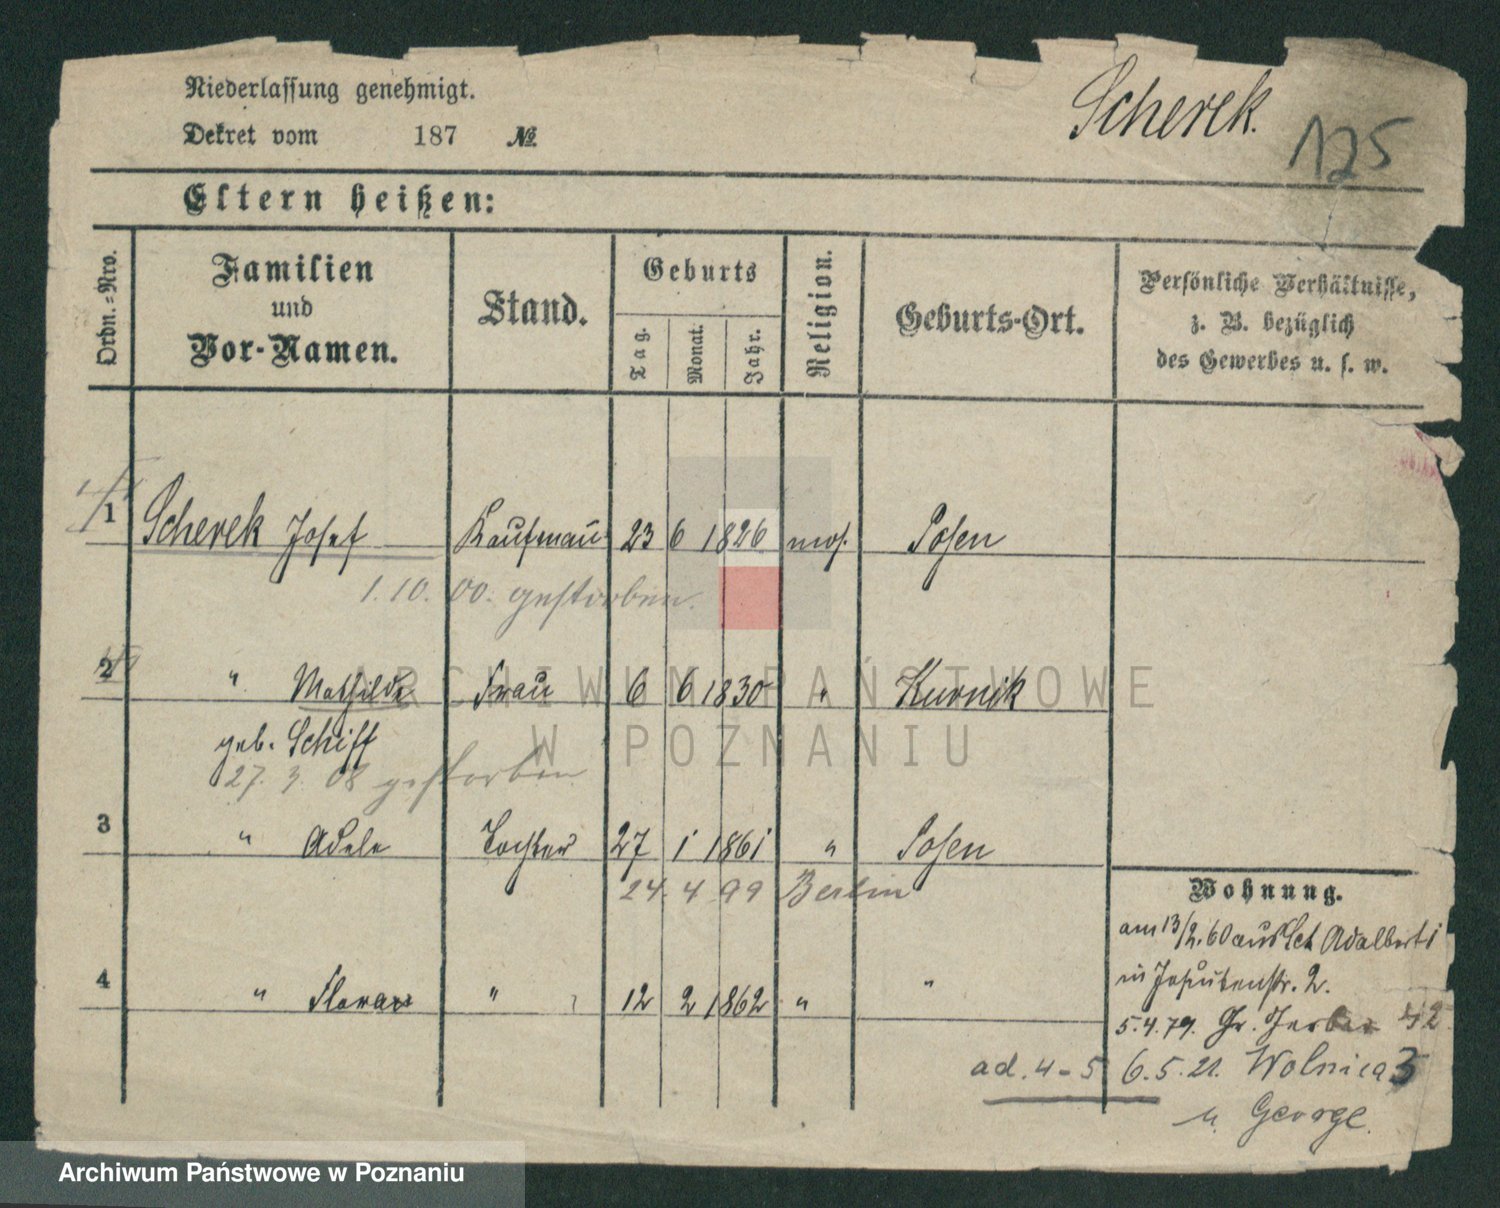 Niederlassung genehmigt.
Scherek.
125
Dekret vom 187 №
Eltern heißen:
Ordn.-Nro.
Familien
und
Vor-Namen.
Stand.
Geburts
Tag.
Monat.
Jahr.
Religion.
Geburts-Ort.
Persönliche Verhältnisse,
z. B. bezüglich
des Gewerbes u. s. w.
1 Scherek Josef Kaufmann 23 6 1826 mos. Posen
1. 10. 00. gestorben.
2 " Mathilde Frau 6 6 1830 " Kurnik
geb. Schiff
27. 3. 08 gestorben
3 " Adele Tochter 27 1 1861 " Posen
24. 4 99 Berlin
4 " Flora " 12 2 1862 " "
Wohnung.
am 13/2. 60 aus Sct Adalbert 1
in Jesuitenstr. 2.
5. 4. 79. Gr. Gerber 42
ad. 4-5 6. 5. 21. Wolnica 3
u. George.
ARCHIWUM PAŃSTWOWE
W POZNANIU
Archiwum Państwowe w Poznaniu